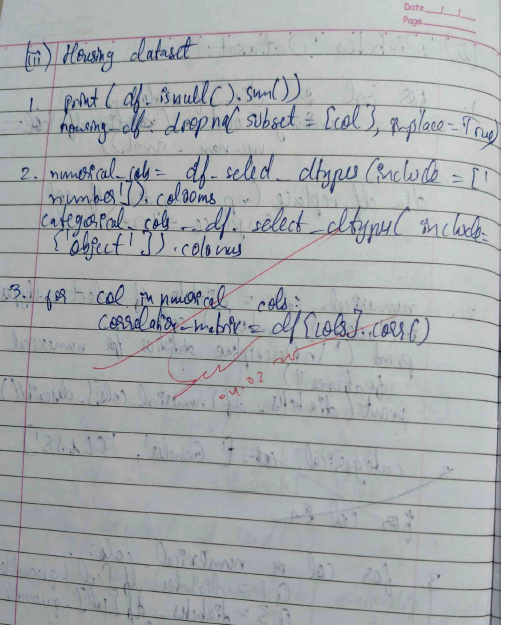 Date
Page
(iii) Housing dataset
1. print (df.isnull().sum())
housing_df. dropna( subset = [col], inplace=True)
2. numerical_cols = df_select_dtypes (include = ['
number']).coloums
categorical_cols _ df. select_dtypes( include=
['object']).coloums
3. for col, in numerical cols:
correlation_matrix = df[cols].corr()
04.03